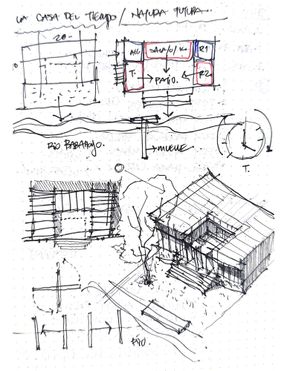 LA CASA DEL TIEMPO / NATURA FUTURA...
20
R1
T.
PATIO.
R2
RÍO BABAHOYO.
MUELLE
T.
RÍO.